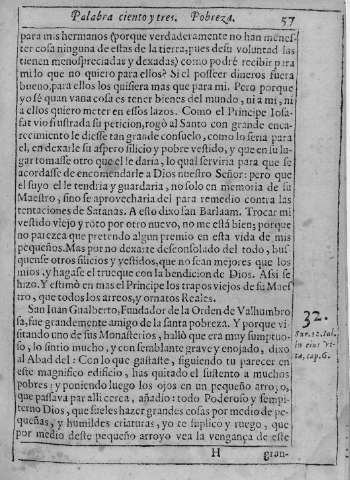 Palabra ciento y tres. Pobreza. 57
para mis hermanos (porque verdaderamente no han menes-
ter cosa ninguna de estas de la tierra, pues de su voluntad las
tienen menospreciadas y dexadas) como podrè recibir para
mi lo que no quiero para ellos? Si el posseer dineros fuera
bueno, para ellos los quisiera mas que para mi. Pero porque
yo sé quan vana cosa es tener bienes del mundo, ni a mi, ni
a ellos quiero meter en essos lazos. Como el Principe Iosa-
fat vio frustrada su peticion, rogò al Santo con grande enca-
recimiento le diesse tan grande consuelo, como lo seria para
el, en dexarle su aspero silicio y pobre vestido, y que en su lu-
gar tomasse otro que el le daria, lo qual serviria para que se
acordasse de encomendarle a Dios nuestro Señor: pero que
el suyo el le tendria y guardaria, no solo en memoria de su
Maestro, sino se aprovecharia del para remedio contra las
tentaciones de Satanas. A esto dixo san Barlaam. Trocar mi
vestido viejo y roto por otro nuevo, no me està bien; porque
no parezca que pretendo algun premio en esta vida de mis
pequeños. Mas por no dexarte desconsolado del todo, bus-
quense otros silicios y vestidos, que no sean mejores que los
mios, y hagase el trueque con la bendicion de Dios. Assi se
hizo. Y estimò en mas el Principe los trapos viejos de su Maes
tro, que todos los arreos, y ornatos Reales.
San Iuan Gualberto, Fundador de la Orden de Valhumbro
sa, fue grandemente amigo de la santa pobreza. Y porque vi-
sitando uno de sus Monasterios, hallò que era muy sumptuo-
so, lo sintio mucho, y con semblante grave y enojado, dixo
al Abad del: Con lo que gastaste, siguiendo tu parecer en
este magnifico edificio, has quitado el sustento a muchos
pobres: y poniendo luego los ojos en un pequeño arroyo,
que passava par alli cerca, añadio: todo Poderoso y sempi-
terno Dios, que sueles hazer grandes cosas por medio de pe-
queñas, y humildes criaturas, yo te suplico y ruego, que
por medio deste pequeño arroyo vea la vengança de este
H gran-
32.
Sur. 12. Iul.
in eius vi-
ta, cap. 6.